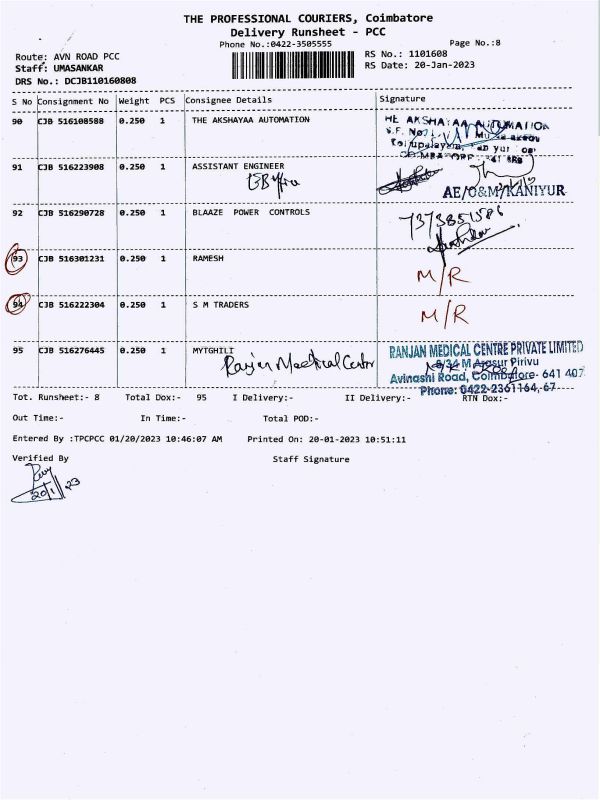 THE PROFESSIONAL COURIERS, Coimbatore
Delivery Runsheet - PCC
Phone No.:0422-3505555
Page No.:8
Route: AVN ROAD PCC
RS No.: 1101608
Staff: UMASANKAR
RS Date: 20-Jan-2023
DRS No.: DCJB110160808
S No Consignment No Weight PCS Consignee Details Signature
90 CJB 516108588 0.250 1 THE AKSHAYAA AUTOMATION
HE AKSHAYAA AUTOMATION
S.F. No
91 CJB 516223908 0.250 1 ASSISTANT ENGINEER
AE/O&M/KANIYUR
92 CJB 516290728 0.250 1 BLAAZE POWER CONTROLS
7373851586
93 CJB 516301231 0.250 1 RAMESH M/R
94 CJB 516222304 0.250 1 S M TRADERS M/R
95 CJB 516276445 0.250 1 MYTGHILI
Ranjan Medical Centr
RANJAN MEDICAL CENTRE PRIVATE LIMITED
Pirivu
Avinashi Road, Coimbatore- 641 407
Phone: 0422-2361164, 67
Tot. Runsheet:- 8 Total Dox:- 95 I Delivery:- II Delivery:- RTN Dox:-
Out Time:- In Time:- Total POD:-
Entered By :TPCPCC 01/20/2023 10:46:07 AM Printed On: 20-01-2023 10:51:11
Verified By Staff Signature
20/1/23